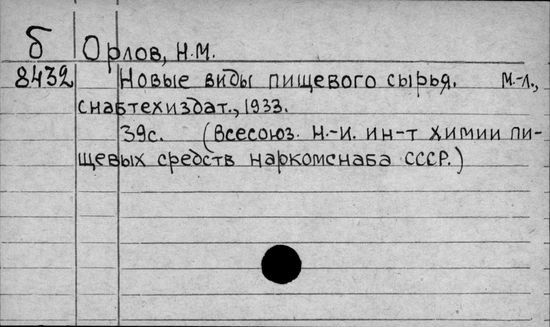 б Орлов, Н.М.
8432 Новые виды пищевого сырья. М.-Л.,
снабтехиздат., 1933.
39с. (Всесоюз. Н.-и. ин-т химии пи-
щевых средств наркомснаба СССР.)